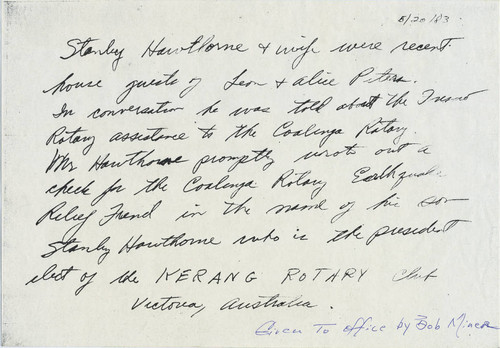 5/20/83
Stanley Hawthorne & wife were recent
house guests of Leon & Alice Peters.
In conversation he was told about the Fresno
Rotary assistance to the Coalinga Rotary.
Mr Hawthorne promptly wrote out a
check for the Coalinga Rotary Earthquake
Relief Fund in the name of his son
Stanley Hawthorne who is the president
elect of the KERANG ROTARY Club
Victoria, Australia.
Given To office by Bob Miner